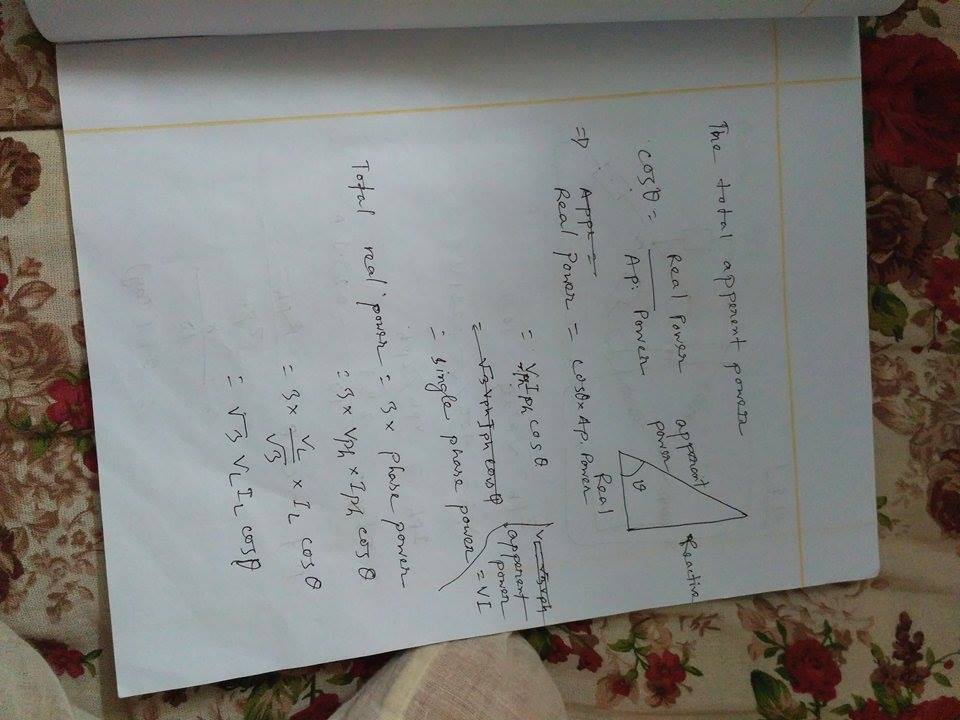 The total apperent power
cosθ = Real Power / Ap. Power
apperant power
Reactive
θ
Real
⇒ Appr =
Real power = cosθ × Ap. Power
= Vph Iph cos θ
= √3 Vph Iph cos θ
= single phase power
V = √3 Vph
apperent
power
= VI
Total real power = 3 × phase power
= 3 × Vph × Iph cos θ
= 3 × VL/√3 × IL cos θ
= √3 VL IL cosθ